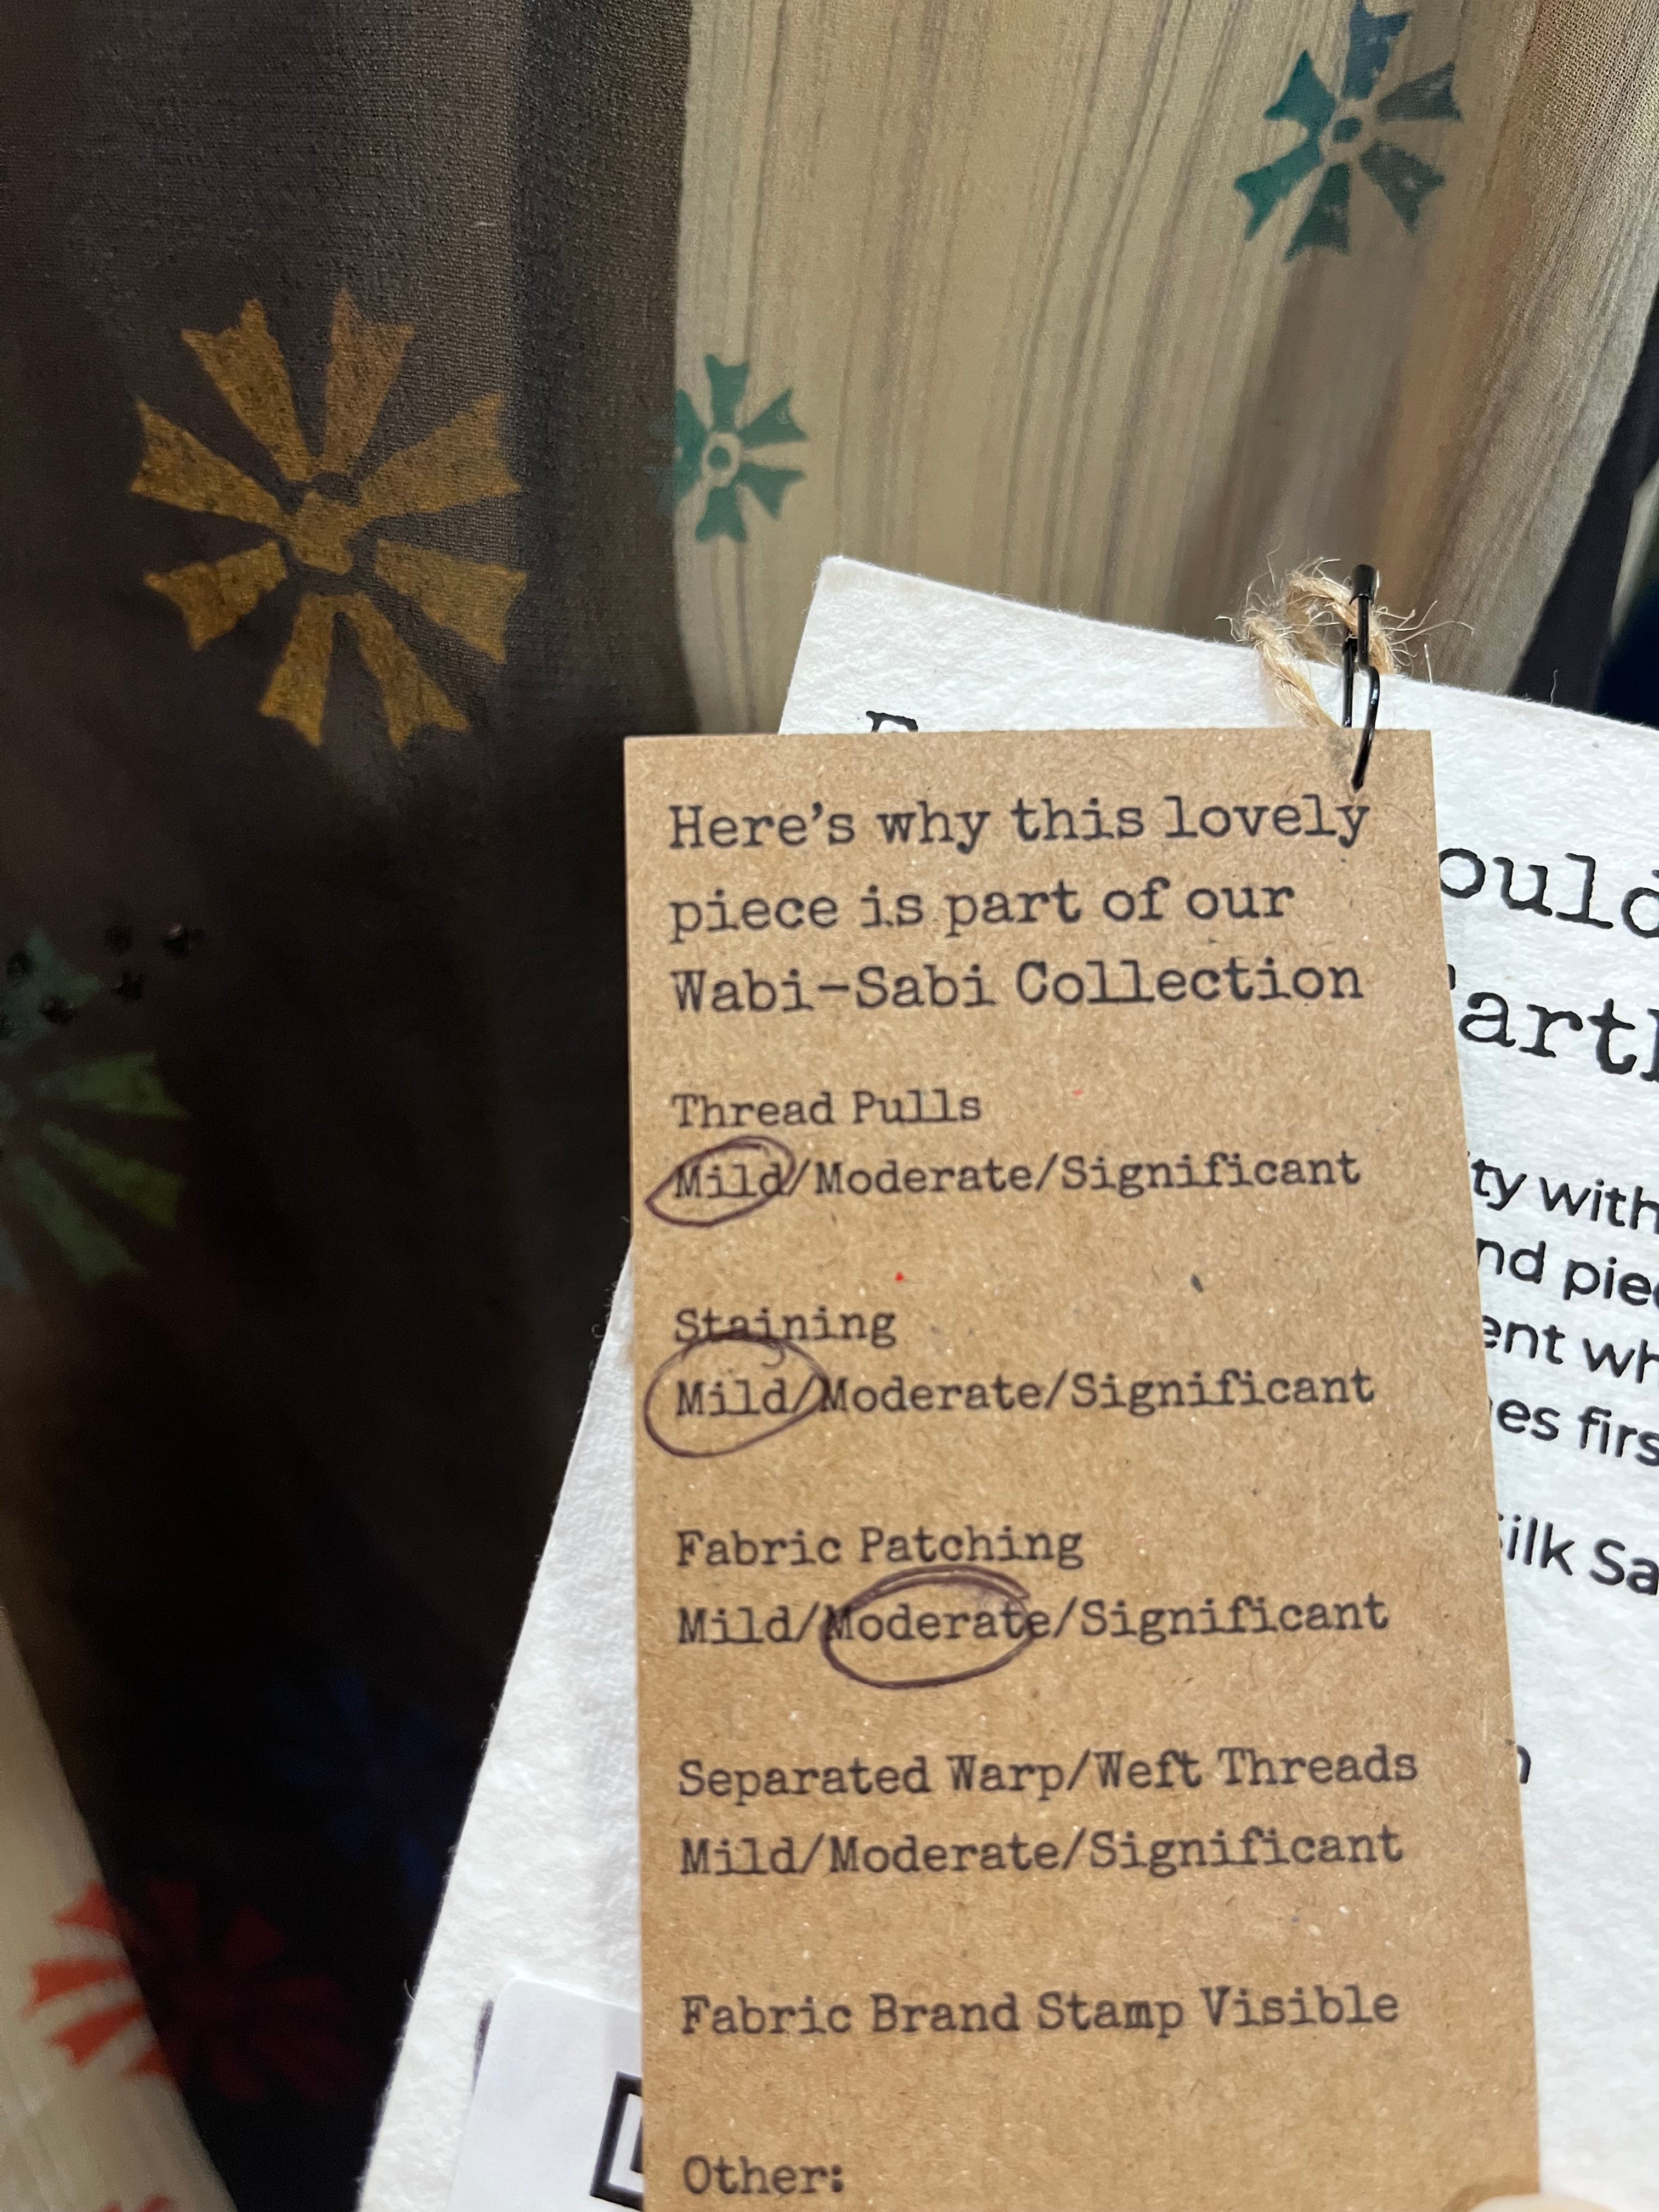 Here's why this lovely
piece is part of our
Wabi-Sabi Collection
Thread Pulls
Mild/Moderate/Significant
Staining
Mild/Moderate/Significant
Fabric Patching
Mild/Moderate/Significant
Separated Warp/Weft Threads
Mild/Moderate/Significant
Fabric Brand Stamp Visible
Other:
with